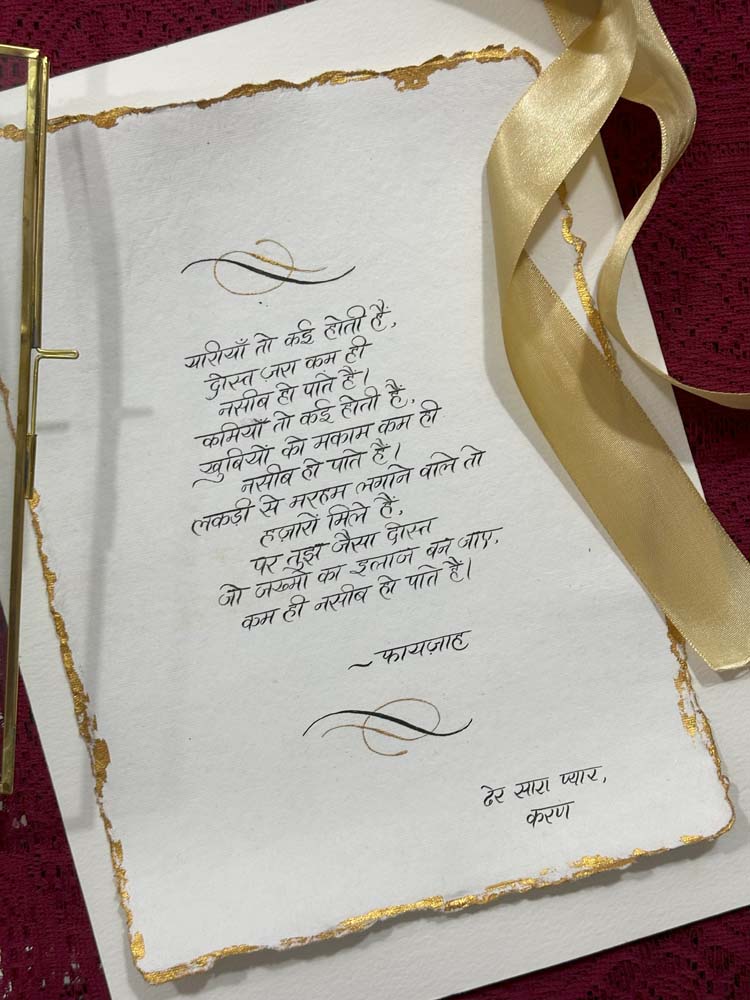 यारीयाँ तो कई होती हैं,
दोस्त ज़रा कम ही
नसीब हो पाते है।
कमियाँ तो कई होती हैं,
खुबियों को मकाम कम ही
नसीब हो पाते है।
लकड़ी से मरहम लगाने वाले तो
हज़ारों मिले हैं,
पर तुझ जैसा दोस्त
जो जख्मों का इलाज बन जाए,
कम ही नसीब हो पाते है।
~फायज़ाह
ढेर सारा प्यार,
करण